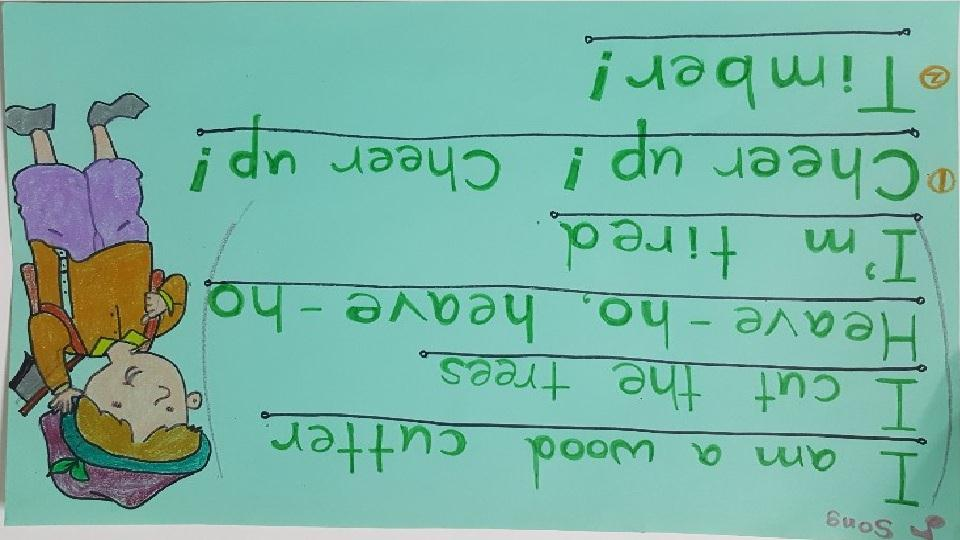 ♪ Song
I am a wood cutter
I cut the trees
Heave-ho, heave-ho
I'm tired
① Cheer up! Cheer up!
② Timber!